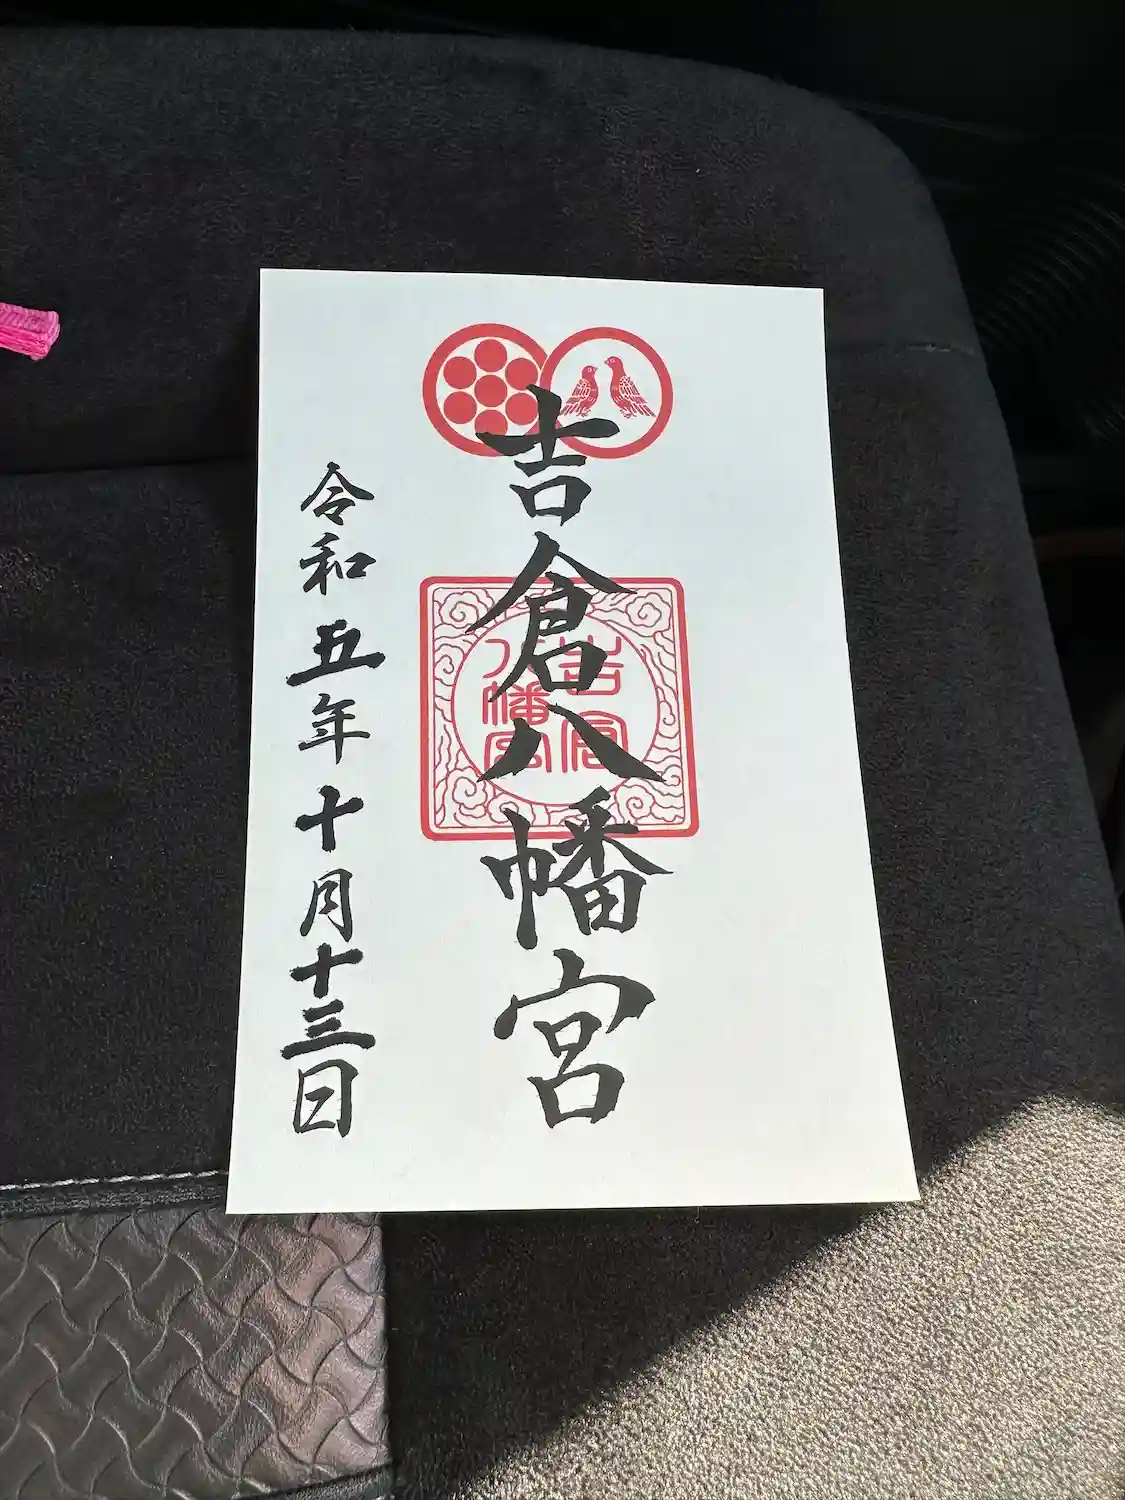 吉倉八幡宮
吉倉
八幡宮
令和五年十月十三日